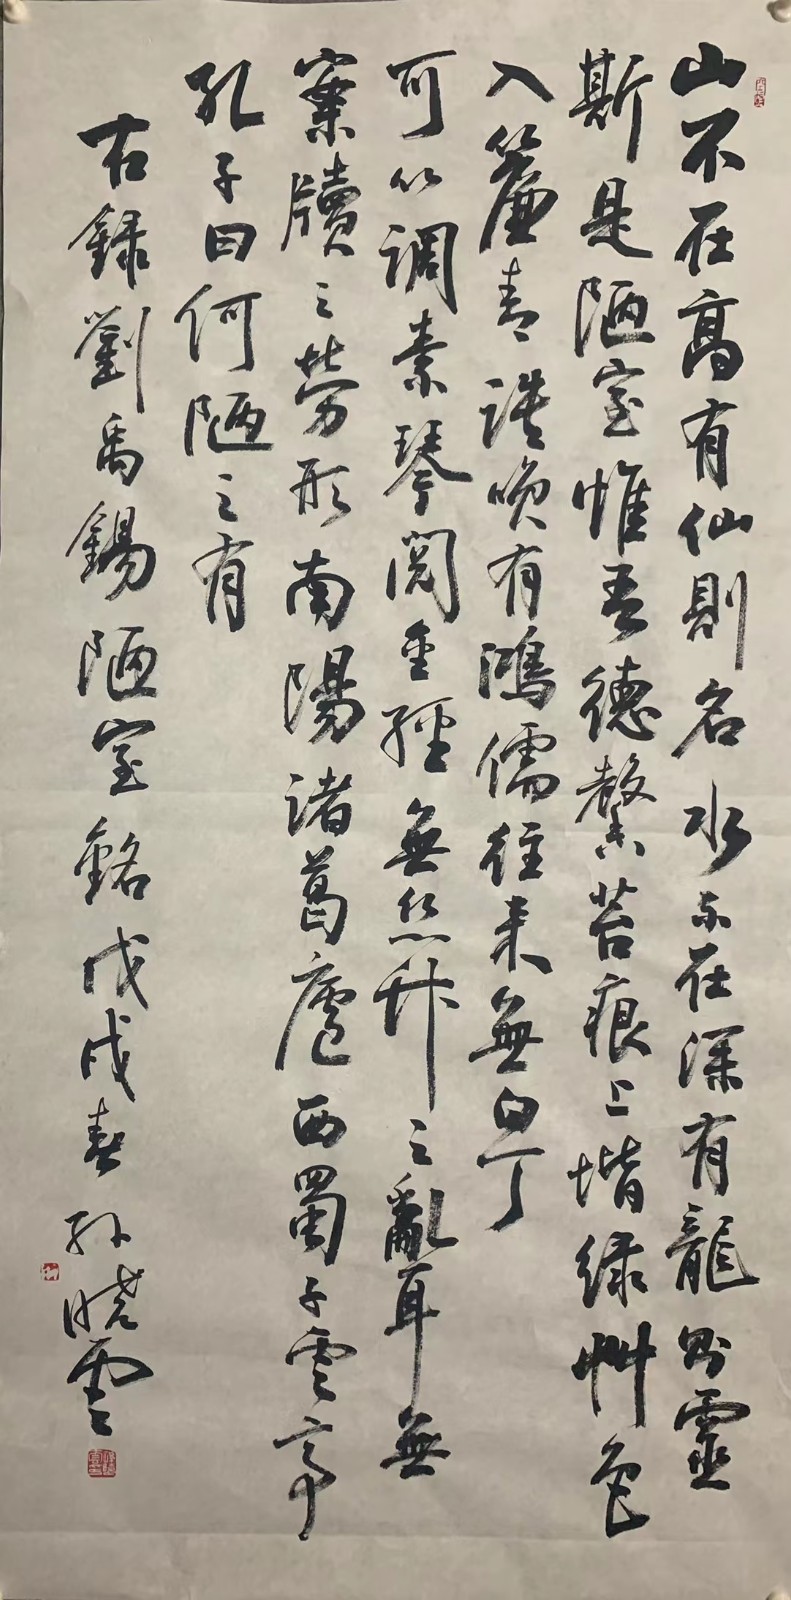 山不在高有仙則名水不在深有龍則靈
斯是陋室惟吾德馨苔痕上堦緑艸色
入簾青談咲有鴻儒往来無白丁
可以調素琴閲金經無丝竹之亂耳無
案牘之勞形南陽諸葛廬西蜀子雲亭
孔子曰何陋之有
右録劉禹錫陋室銘戊戌春孫曉雲